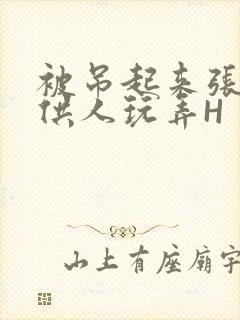 被吊起来张
供人玩弄H
山上有座庙宇